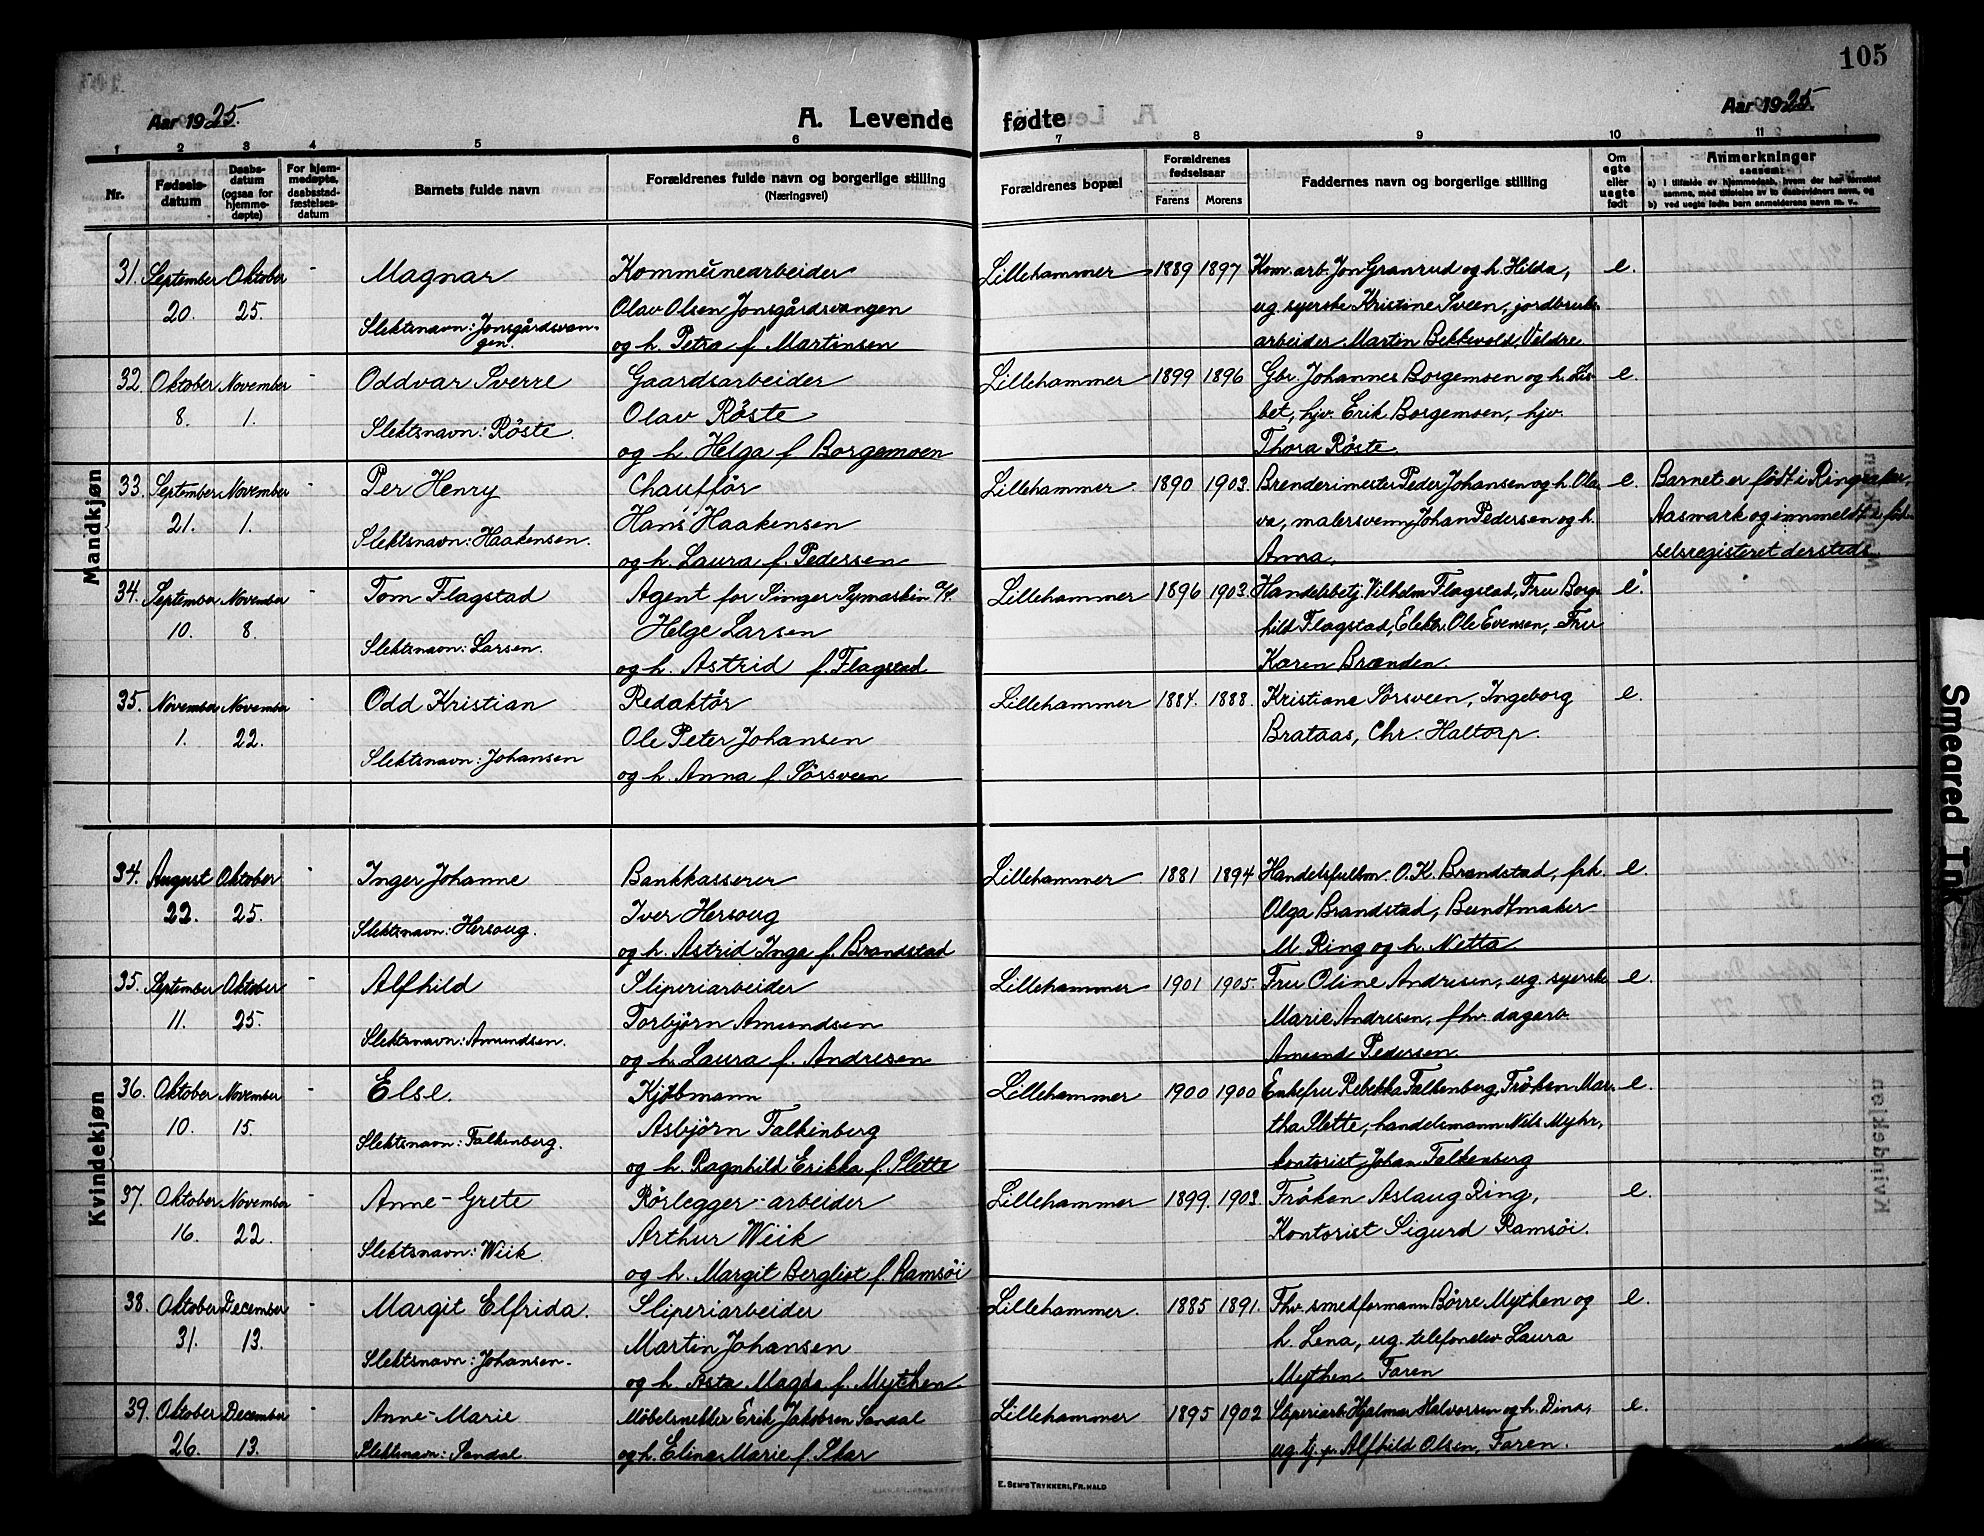 105
Aar 1925.
A. Levende fødte
Aar 1925.
1 2 3 4 5 6 7 8 9 10 11
Nr.
Fødsels-
datum
Daabs-
datum
(ogsaa for
hjemme-
døpte)
For hjem-
medøpte,
daabsstad-
fæstelses-
datum
Barnets fulde navn
Forældrenes fulde navn og borgerlige stilling
(Næringsvei)
Forældrenes bopæl
Forældrenes
fødselsaar
Farens Morens
Faddernes navn og borgerlige stilling
Om
egte
eller
uegte
født
Anmerkninger
saasom:
a) i tilfælde av hjemmedaab, hvem der har forrettet
samme, med tilføielse av to daabsvidners navn, og
b) ved uegte fødte barn anmelderens navn m. v.
Mandkjøn
31. September Oktober - Magnar Kommunearbeider Lillehammer 1889 1897 Kom.arb. Jon Granrud og h. Hilda, e.
20. 25. Slektsnavn: Jonsgårdsvan- Olav Olsen Jonsgårdsvangen ug. syerske Kristine Sveen, jordbruks-
gen. og h. Petra f. Martinsen arbeider Martin Bekkevold, Veldre
32. Oktober November - Oddvar Sverre Gaardsarbeider Lillehammer 1899 1896 Gbr. Johannes Borgemoen og h. Lis- e.
8. 1. Slektsnavn: Røste. Olav Røste bet, hjv. Erik Borgemoen, hjv.
og h. Helga f. Borgemoen Thora Røste.
33. September November - Per Henry Chauffør Lillehammer. 1890 1903. Brenderimester Peder Johansen og h. Ola- e. Barnet er født i Ringsaker,
21. 1. Slektsnavn: Haakensen. Hans Haakensen va, malersvenn Johan Pedersen og h. Aasmark og innmeldt i fød-
og h. Laura f. Pedersen Anna. selsregisteret dersteds.
34. September November - Tom Flagstad Agent for Singer Symaskin A/S. Lillehammer 1896 1903. Handelsbetj. Vilhelm Flagstad, Fru Borg- e.
10. 8. Slektsnavn: Larsen. Helge Larsen hild Flagstad, Elektr. Ole Evensen, Fru
og h. Astrid f. Flagstad Karen Brænden.
35. November November - Odd Kristian Redaktør Lillehammer 1884. 1888. Kristiane Sørsveen, Ingeborg e.
1. 22. Slektsnavn: Johansen Ole Peter Johansen Brataas, Chr. Haltorp.
og h. Anna f. Sørsveen
Kvindekjøn
34. August Oktober - Inger Johanne Bankkasserer Lillehammer 1881 1894 Handelsfullm. O.K. Brandstad, frk. e.
22. 25. Slektsnavn: Hersoug. Iver Hersoug Olga Brandstad, Bundtmaker
og h. Astrid Inga f. Brandstad M. Ring og h. Netta
35. September Oktober - Alfhild Sliperiarbeider Lillehammer 1901 1905. Fru Oline Andresen, ug. syerske e.
11. 25. Slektsnavn: Amundsen. Torbjørn Amundsen Marie Andresen, fhv. dagarb.
og h. Laura f. Andresen Amund Pedersen
36. Oktober November - Else. Kjøbmann Lillehammer 1900 1900 Enkefru Rebekka Falkenberg, Frøken Mar- e.
10. 15. Slektsnavn: Falkenberg. Asbjørn Falkenberg tha Slette, handelsmann Nils Myhr,
og h. Ragnhild Erikka f. Slette kontorist Johan Falkenberg
37. Oktober November - Anne-Grete Rørlegger-arbeider Lillehammer 1899. 1903. Frøken Aslaug Ring, e.
16. 22. Slektsnavn: Wiik Arthur Wiik Kontorist Sigurd Ramsøi.
og h. Margit Bergliot f. Ramsøi
38. Oktober December - Margit Elfrida. Sliperiarbeider Lillehammer. 1885 1891. Fhv. smedformann Børre Mythen og e.
31. 13. Slektsnavn: Johansen. Martin Johansen h. Lena, ug. telefonelev Laura
og h. Asta Magda f. Mythen. Mythen, Faren
39. Oktober December - Anne-Marie Møbelsnekker Erik Jakobsen Sandal Lillehammer 1895 1902 Sliperiarb. Hjalmar Halvorsen og h. Dina, e.
26. 13. Slektsnavn: Sandal. og h. Elina Marie f. Skar ug. tj.p. Alfhild Olsen, Faren.
E. Sem's Trykkeri, Fr.hald
Smeared Ink